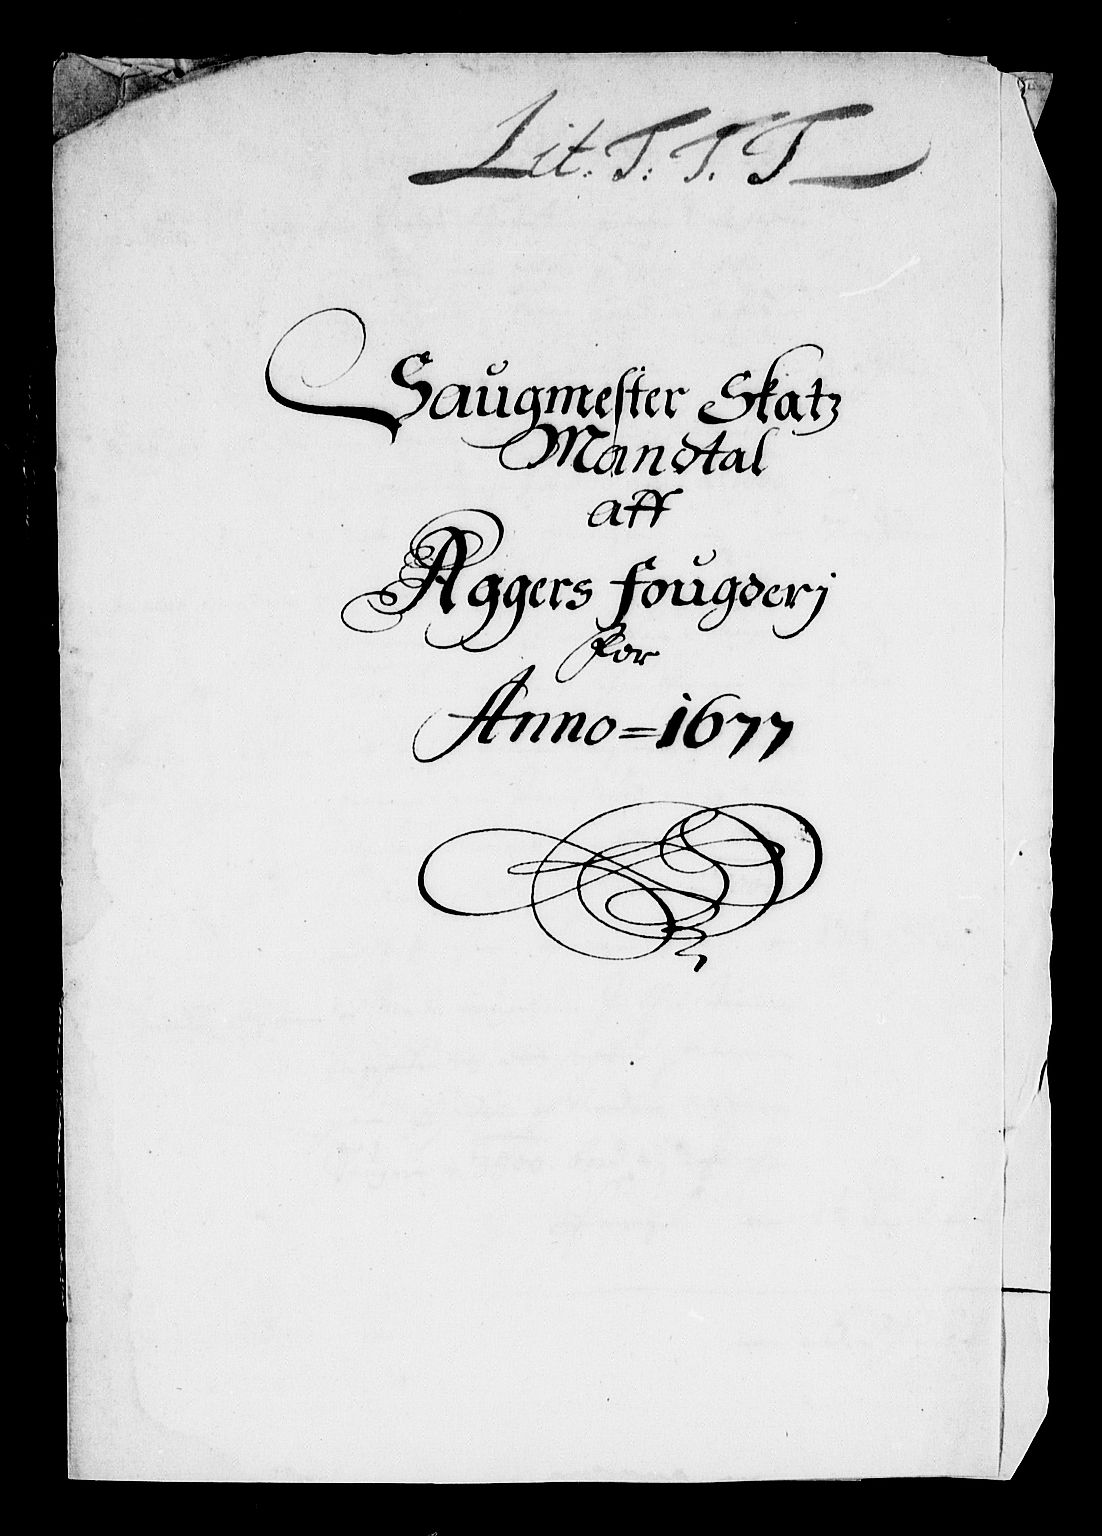 Lit. T. T. T
Saugmester Skatz
Mandtal
aff
Aggers fougderj
for
Anno = 1677